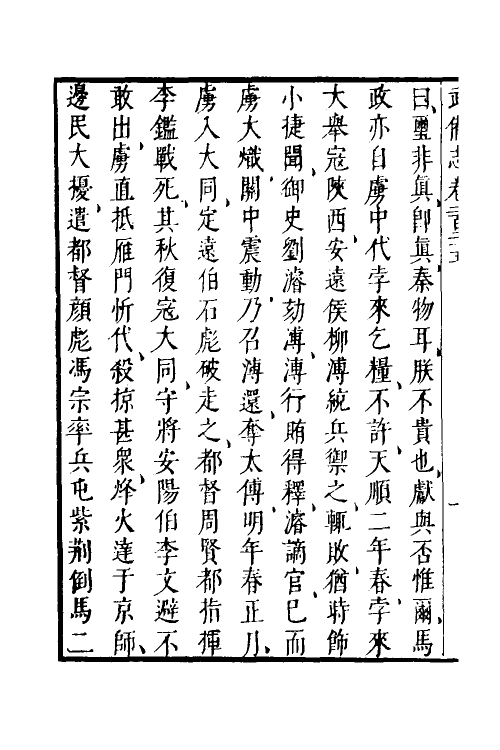 武備志卷二百二十五
一
曰璽非眞卽眞秦物耳朕不貴也獻與否惟爾馬
政亦自虜中代孛來乞糧不許天順二年春孛來
大舉寇陝西安遠侯柳溥統兵禦之輒敗猶時飾
小捷聞御史劉濬劾溥溥行賄得釋濬謫官已而
虜大熾關中震動乃召溥還奪太傅明年春正月
虜入大同定遠伯石彪破走之都督周賢都指揮
李鑑戰死其秋復寇大同守將安陽伯李文避不
敢出虜直抵雁門忻代殺掠甚衆烽火達于京師
邊民大擾遣都督顏彪馮宗率兵屯紫荆倒馬二